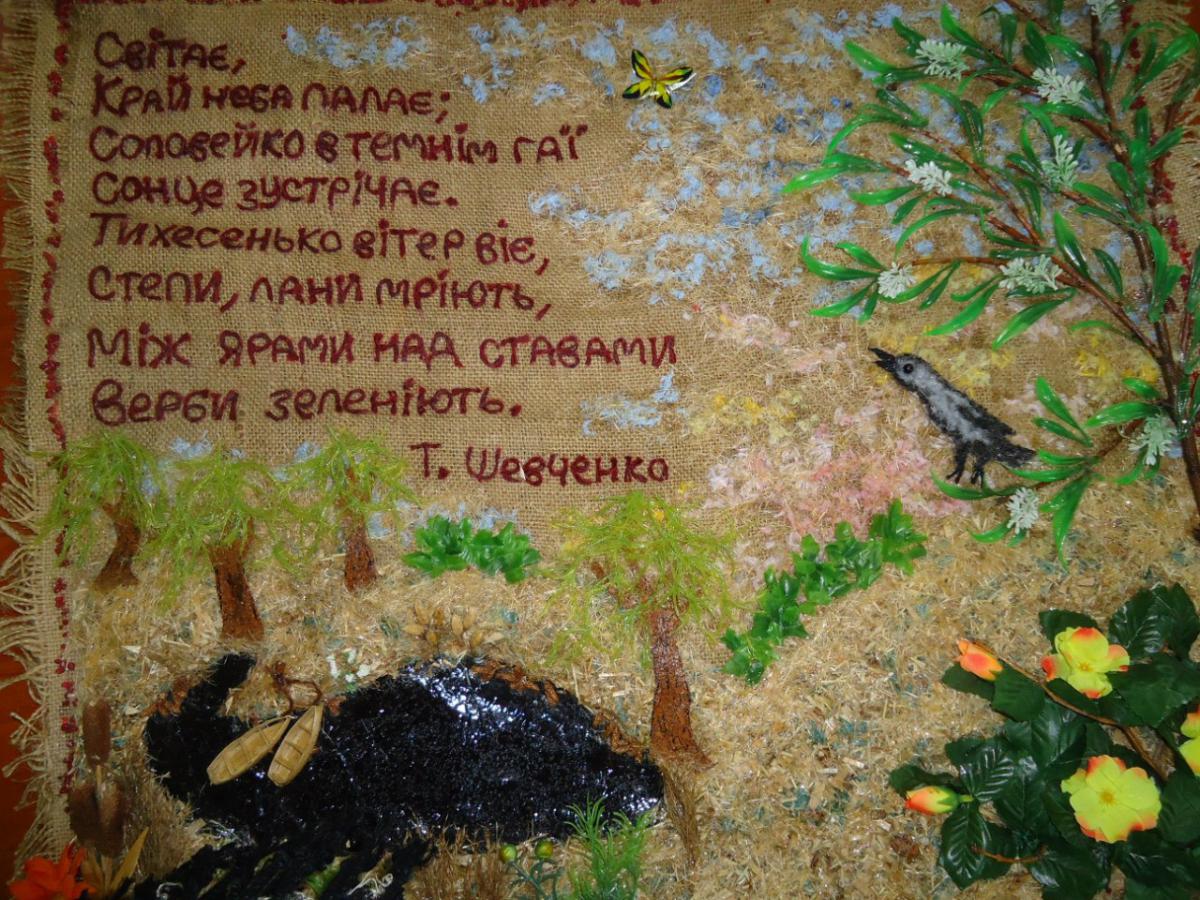 Світає,
Край неба палає;
Соловейко в темнім гаї
Сонце зустрічає.
Тихесенько вітер віє,
Степи, лани мріють,
Між ярами над ставами
Верби зеленіють.
Т. Шевченко